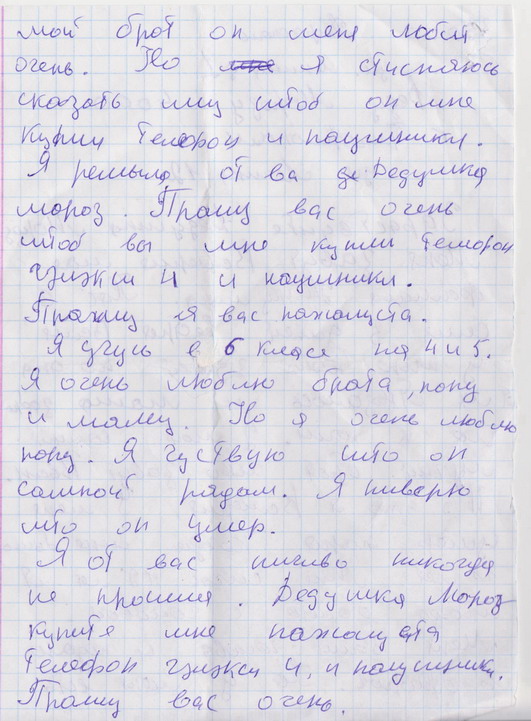 мой брот он меня любит
очень. Но мне я стисняюсь
сказать иму штоб он мне
купил Телефон и наушники.
Я решыла от ва де Дедушка
мороз. Прашу вас очень
штоб вы мне купили Телефон
гэлэкси 4 и наушники.
Прашу я вас пажалуста.
Я учусь в 6 класе на 4 и 5.
Я очень люблю брата, папу
и маму. Но я очень люблю
папу. Я чуствую што он
самной рядам. Я ниверю
што он умер.
Я от вас ничиво никогда
не прашила. Дедушка Мороз
купите мне пажалуста
Телефон гэлэкси 4, и наушники.
Прашу вас очень.